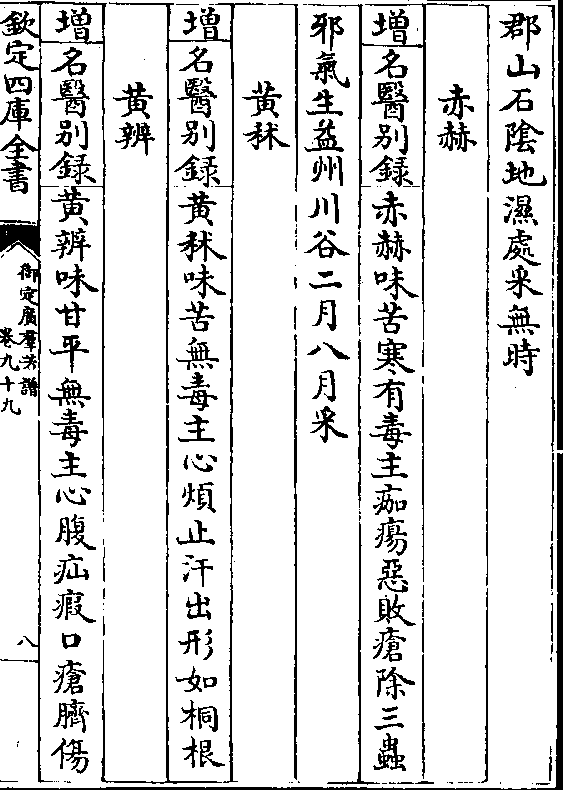 郡山石隂地濕處采無時
赤赫
增名醫别録赤赫味苦寒有毒主痂瘍惡敗瘡除三蟲
邪氣生益州川谷二月八月采
黄秫
增名醫别録黄秫味苦無毒主心煩止汗出形如桐根
黄辨
增名醫别録黄辨味甘平無毒主心腹疝瘕口瘡臍傷
欽定四庫全書
御定廣羣芳譜
卷九十九
八